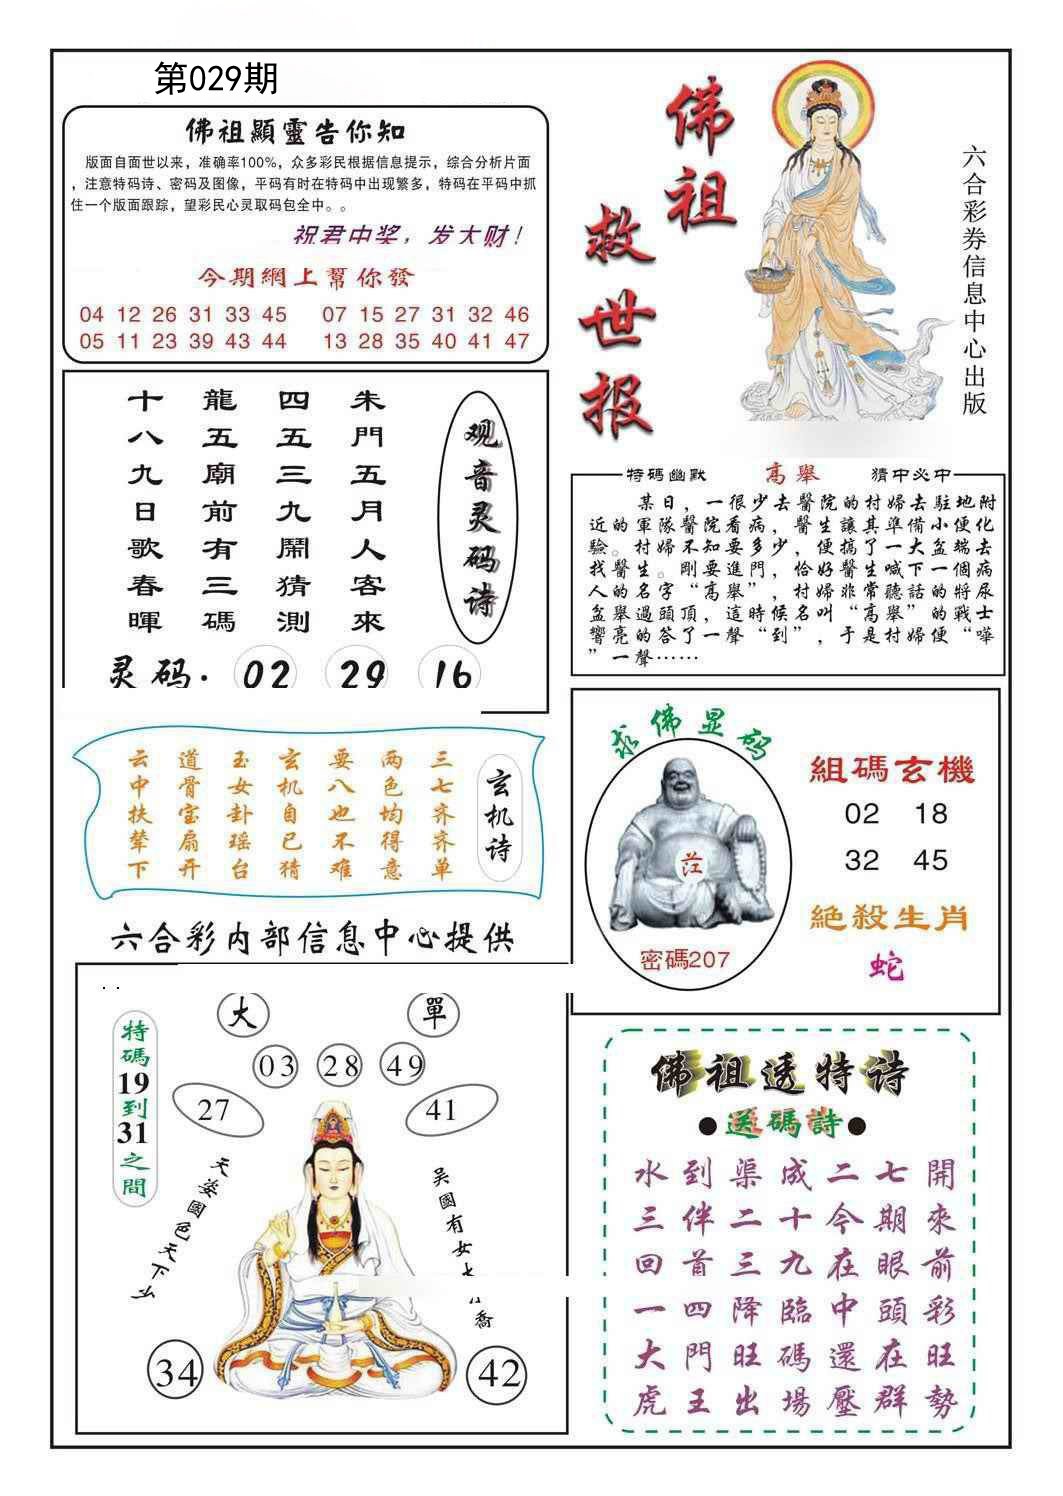 第029期
佛祖顯靈告你知
版面自面世以来，准确率100%，众多彩民根据信息提示，综合分析片面
，注意特码诗、密码及图像，平码有时在特码中出现繁多，特码在平码中抓
住一个版面跟踪，望彩民心灵取码包全中。。
祝君中奖，发大财！
今期網上幫你發
04 12 26 31 33 45 07 15 27 31 32 46
05 11 23 39 43 44 13 28 35 40 41 47
佛祖
救世报
六合彩券信息中心出版
观音灵码诗
朱門五月人客來
四五三九鬧猜測
龍五廟前有三碼
十八九日歌春暉
灵码.
02 29 16
特碼幽默 高舉 猜中必中
某日，一很少去醫院的村婦去駐地附
近的軍隊醫院看病，醫生讓其準備小便化
驗。村婦不知要多少，便搞了一大盆端去
找醫生。剛要進門，恰好醫生喊下一個病
人的名字“高舉”，村婦非常聽話的將尿
盆舉過頭頂，這時候名叫“高舉”的戰士
響亮的答了一聲“到”，于是村婦便“嘩
”一聲……
玄机诗
三七齐齐单
两色均得意
要八也不难
玄机自已猜
玉女卦瑶台
道骨宝扇开
云中扶辇下
求佛显码
密碼207
組碼玄機
02 18
32 45
絕殺生肖
蛇
六合彩内部信息中心提供
大 單
03 28 49
27 41
特碼19到31之間
天姿國色天下
吴國有女
喬
34 42
佛祖透特诗
●送碼詩●
水到渠成二七開
三伴二十今期來
回首三九在眼前
一四降臨中頭彩
大門旺碼還在旺
虎王出場壓群勢